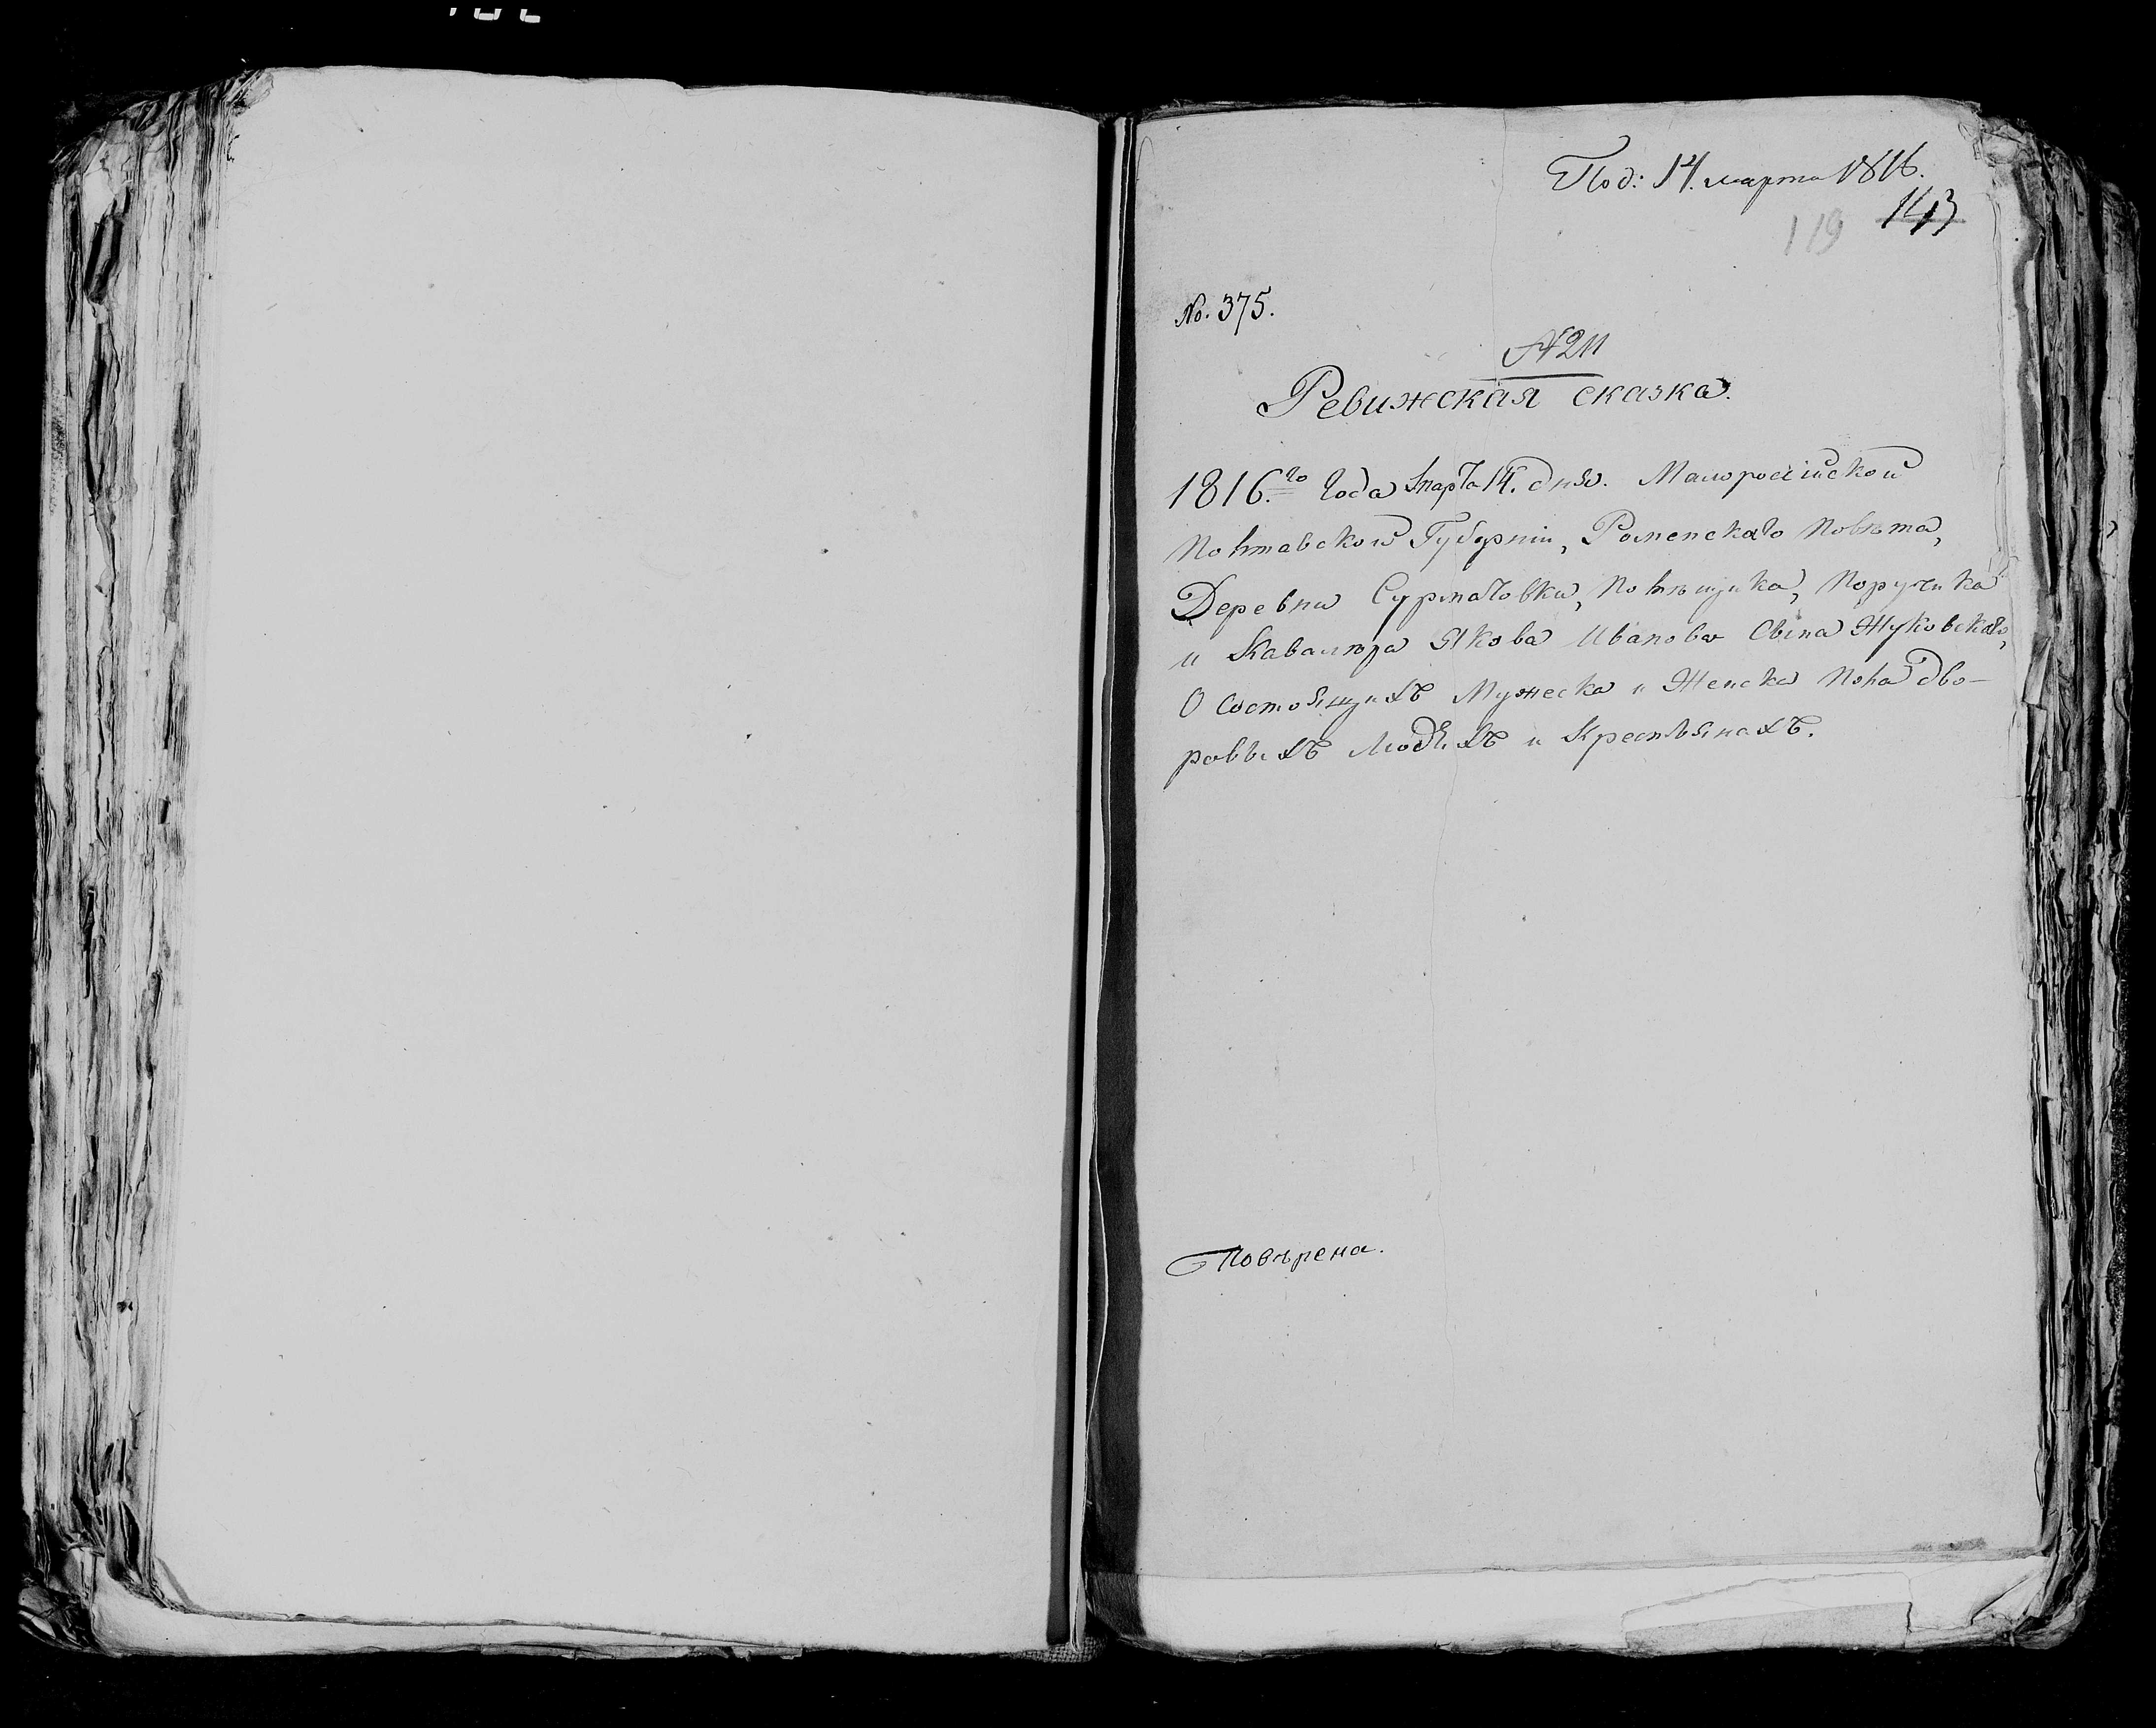 Под: 14. марта 1816.
143
119
No. 375.
№ 211
Ревижская сказка.
1816.го Года Марта 14. дня. Малоросійской
Полтавской Губерніи, Роменскаго Повѣта,
Деревни Сурмачовки, Помѣщика, Поручика
и Кавалѣра Якова Иванова Сына Жуковскаго,
О состоящихъ Мужеска и Женска Пола дво-
ровыхъ Людяхъ и Крестьянахъ.
Повѣрена.